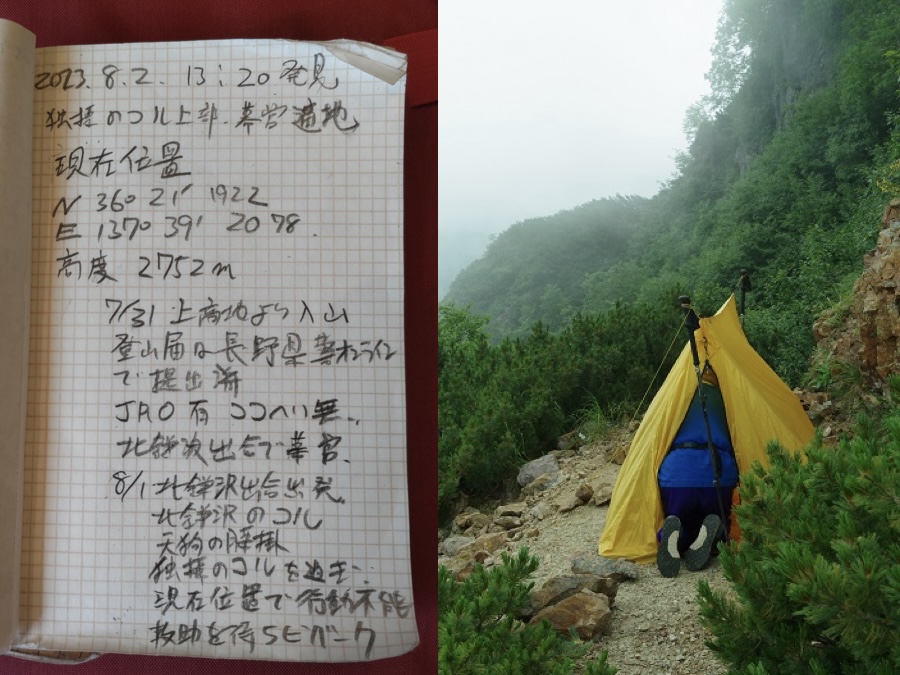 2023.8.2. 13:20 発見
独標のコル上部.幕営適地
現在位置
N 36° 21′ 1922
E 137° 39′ 2078.
高度 2752m
7/31 上高地より入山
登山届は長野県警オンライン
で提出済
JRO有 ココヘリ無.
北鎌沢出合で幕営.
8/1 北鎌沢出合出発.
北鎌沢のコル
天狗の腰掛
独標のコルを過ぎ.
現在位置で行動不能
救助を待ちビバーク